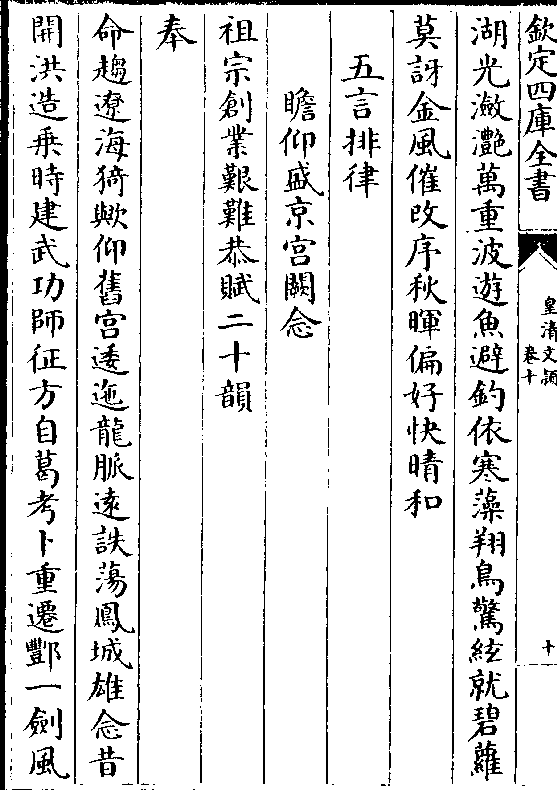 欽定四庫全書
皇清文頴
卷十
十
湖光瀲灔萬重波遊魚避釣依寒藻翔鳥驚絃就碧蘿
莫訝金風催改序秋暉偏好快晴和
五言排律
瞻仰盛京宫闕念
祖宗創業艱難恭賦二十韻
奉
命趨遼海猗歟仰舊宫逶迤龍脈遠詄蕩鳳城雄念昔
開洪造乗時建武功師征方自葛考卜重遷酆一劍風